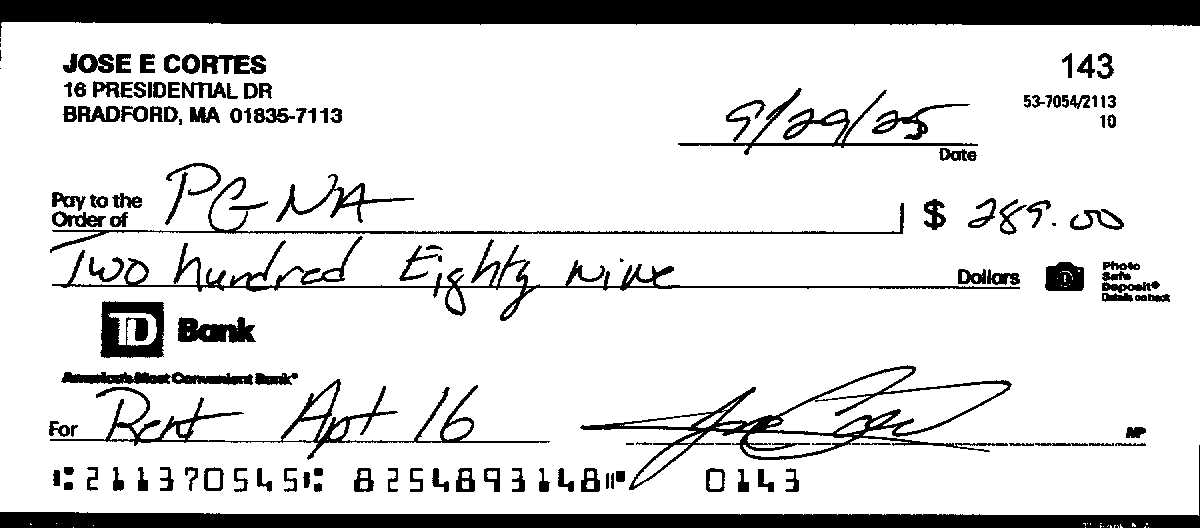 JOSE E CORTES
16 PRESIDENTIAL DR
BRADFORD, MA 01835-7113
143
53-7054/2113
10
9/29/25
Date
Pay to the Order of PGNA $ 289.00
Two hundred Eighty nine Dollars
Photo Safe Deposit® Details on back
TD Bank
America's Most Convenient Bank®
For Rent Apt 16
MP
⑆211370545⑆ 8254893148⑈ 0143